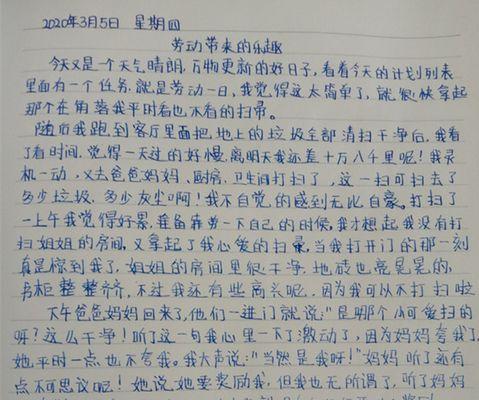 2020年3月5日 星期四
劳动带来的乐趣
今天又是一个天气晴朗,万物更新的好日子,看看今天的计划列表
里面有一个任务,就是劳动一日,我觉得这太简单了,就很快拿起
那个在角落我平时看也不看的扫帚。
随后我跑到客厅里面把,地上的垃圾全部清扫干净后,我看
了看时间,觉得一天过的好慢,离明天我还差十万八千里呢!我灵
机一动,又去爸爸妈妈、厨房、卫生间打扫了,这一扫可扫去了
多少垃圾、多少灰尘啊!我不自觉的感到无比自豪。打扫了
一上午我觉得好累,准备犒劳一下自己的时候,我才想起我没有打
扫姐姐的房间,又拿起了我心爱的扫帚,当我打开门的那一刻
真是惊到我了,姐姐的房间里很干净,地砖也亮晃晃的,
书柜整整齐,不过我还有些高兴呢,因为我可以不打扫啦
下午爸爸妈妈回来了,他们一进门就说:"是哪个小可爱扫的
呀?这么干净!听了这一句我心里一下子激动了,因为妈妈夸我了,
她平时一点也不夸我。我大声说:"当然是我呀!"妈妈听了还有
点不可思议呢!她说她要奖励我,但我也无所谓了,听了妈妈